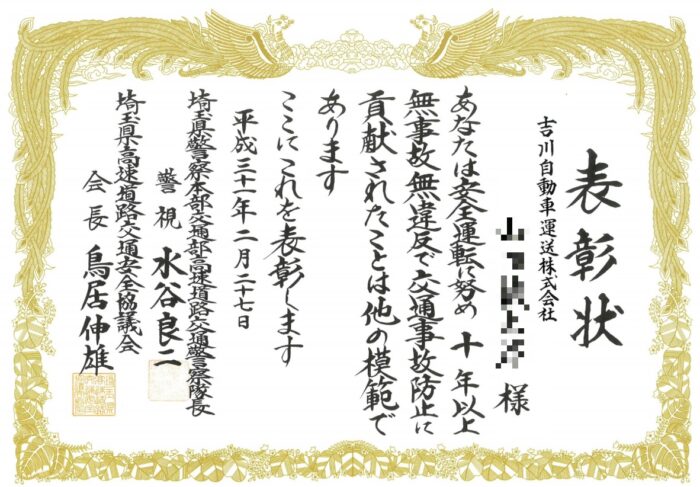 表彰状
吉川自動車運送株式会社
様
あなたは安全運転に努め 十年以上
無事故無違反で交通事故防止に
貢献されたことは他の模範で
あります
ここにこれを表彰します
平成三十一年二月二十七日
埼玉県警察本部交通部高速道路交通警察隊長
警視 水谷良二
埼玉県高速道路交通安全協議会
会長 鳥居伸雄